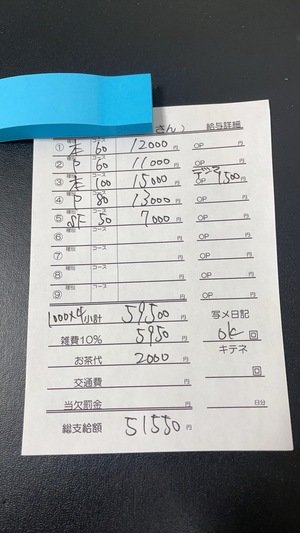 さん） 給与詳細
① 種別 本 コース 60 12000円 OP 円
② 種別 P コース 60 11000円 OP 円
③ 種別 本 コース 100 15000円 OP 1500円
④ 種別 P コース 80 13000円 OP 円
⑤ 種別 SF コース 50 7000円 OP 円
⑥ 種別 コース 円 OP 円
⑦ 種別 コース 円 OP 円
⑧ 種別 コース 円 OP 円
⑨ 種別 コース 円 OP 円
1000×4 小計 59500円 写メ日記
雑費10% 5950円 ok 回
お茶代 2000円 キテネ
交通費 円 回
当欠罰金 円 日分
総支給額 51550円